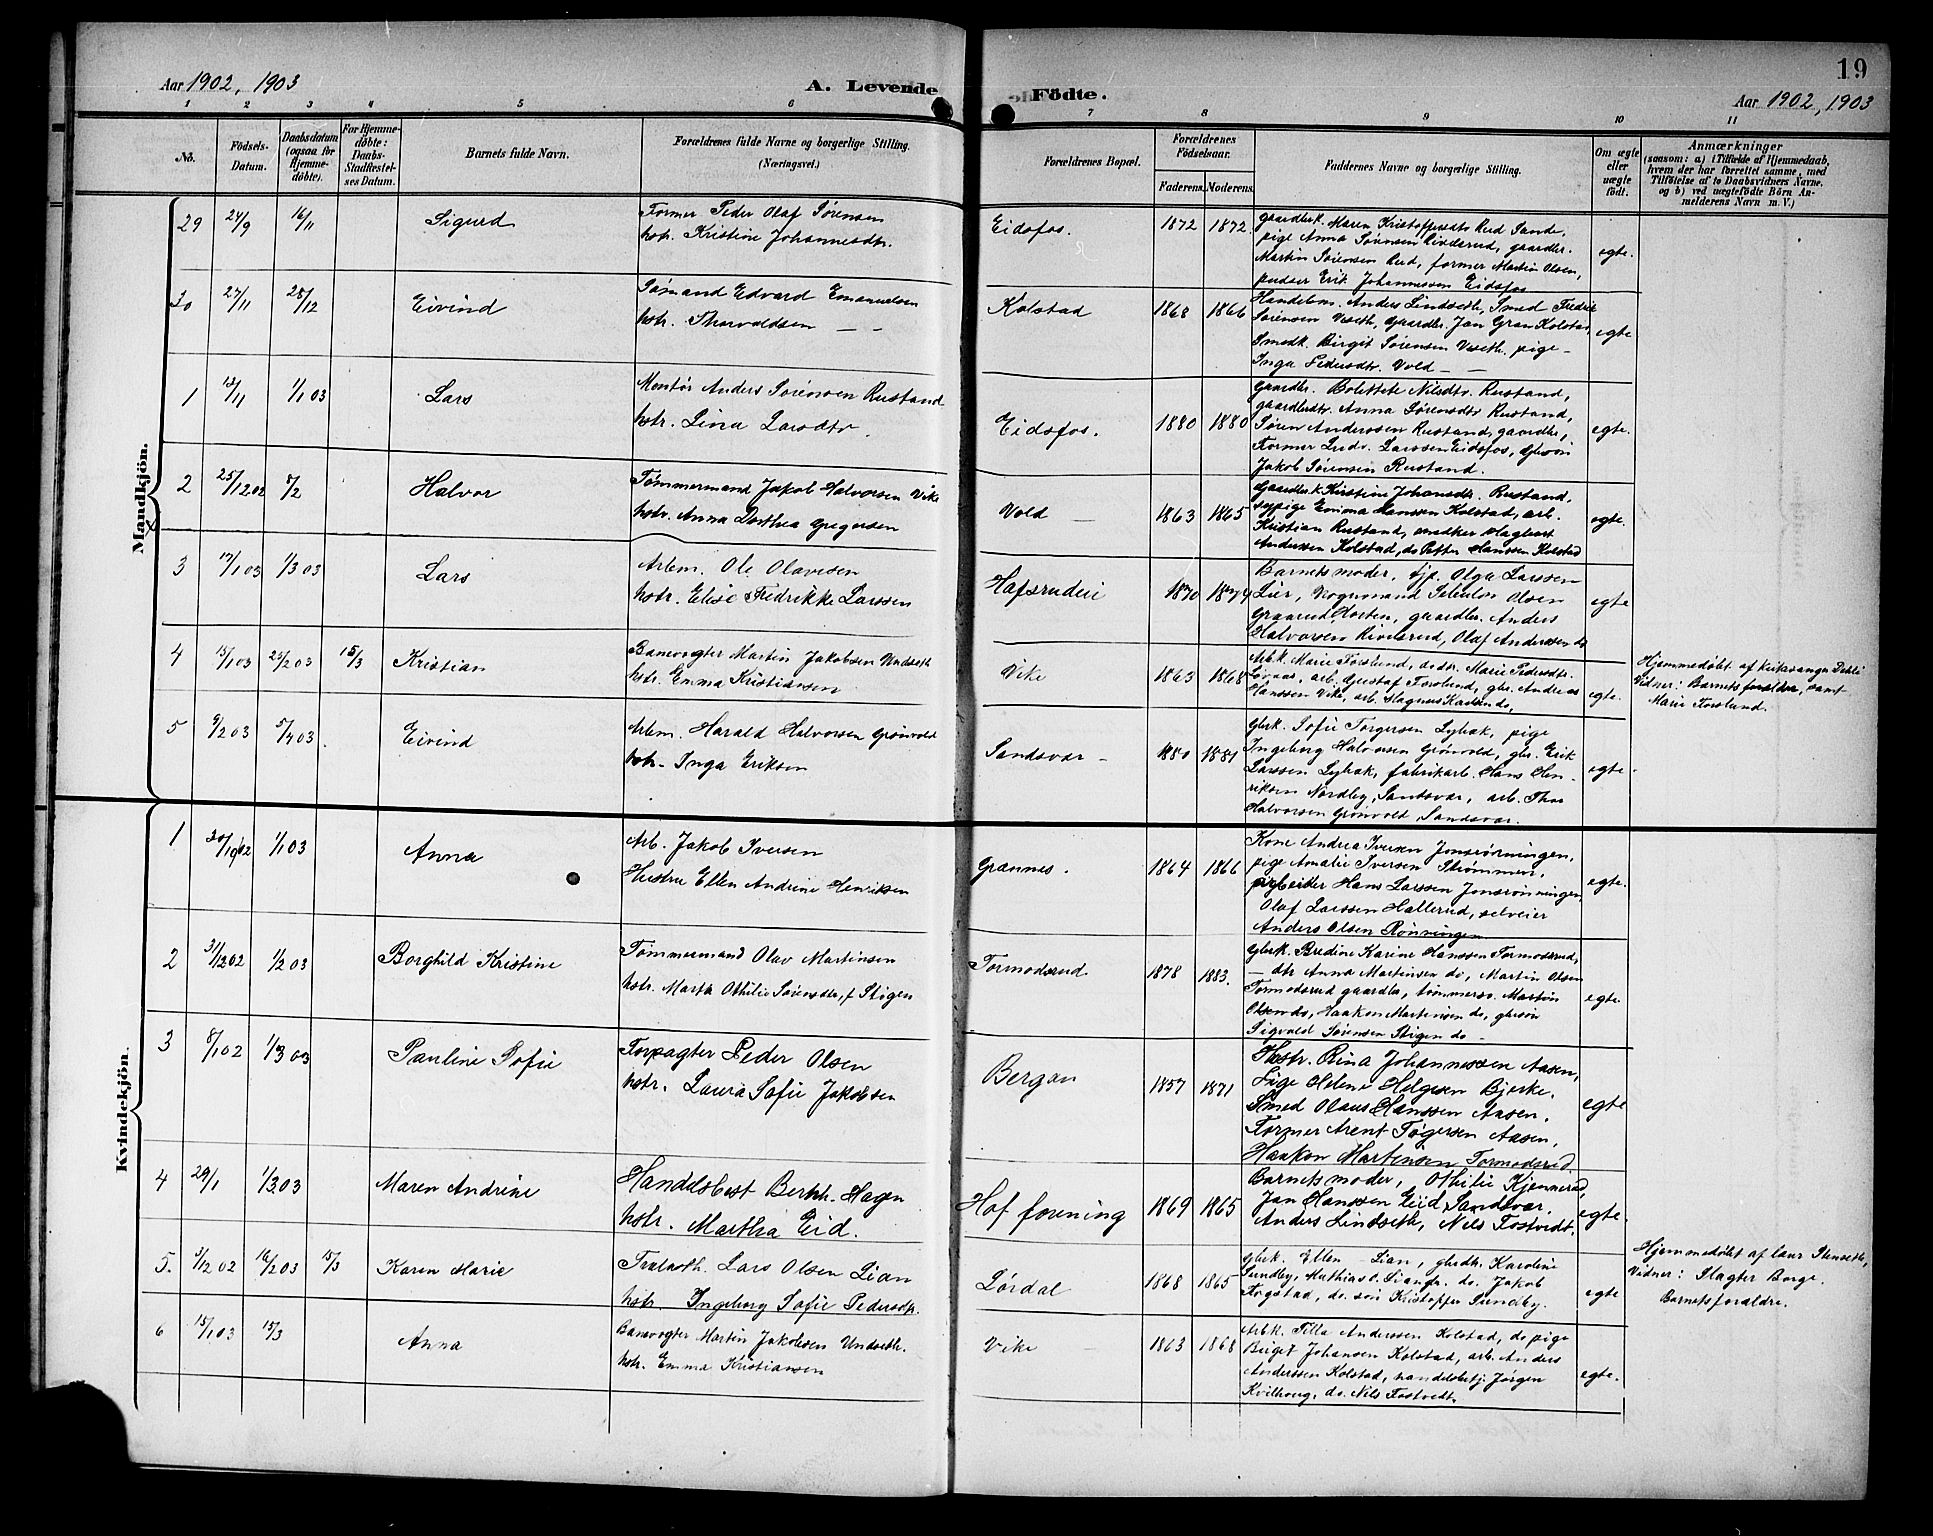 19
Aar 1902, 1903
A. Levende Födte.
Aar 1902, 1903
1 2 3 4 5 6 7 8 9 10 11
No.
Födsels-Datum.
Daabsdatum (ogsaa for Hjemme-döbte).
For Hjemme-döbte: Daabs-Stadfæstel-ses Datum.
Barnets fulde Navn.
Forældrenes fulde Navne og borgerlige Stilling.
(Næringsvei.)
Forældrenes Bopæl.
Forældrenes Födselsaar.
Faderens. Moderens.
Faddernes Navne og borgerlige Stilling.
Om ægte eller uægte födt.
Anmærkninger
(saasom: a) i Tilfælde af Hjemmedaab,
hvem der har forrettet samme, med
Tilföielse af to Daabsvidners Navne,
og b) ved uægtefödte Börn An-
melderens Navn m. V.)
Mandkjön.
29 24/9 16/11 Sigurd
Former Peder Olaf Sørensen
hstr. Kristine Johannesdtr.
Eidsfos. 1872 1872.
gaardbrk. Maren Kristoffersdtr Rud Sande,
pige Anna Sørensen Rivderud, gaardbr.
Martin Sørensen Rud, former Martin Olsen,
pudser Erik Johannessen Eidsfos
egte.
30 27/11 28/12 Eivind
Sømand Edvard Emanuelsen
hstr. Thorvaldsen — -
Kolstad 1868 1866
Handelsm. Anders Lindseth, Smed Fredrik
Sørensen Veseth, Gaardbr. Jan Gran Kolstad,
Smedk. Birgit Sørensen Veseth. pige -
Inga Pedersdtr. Vold - -
egte
1 13/11 1/1 03 Lars
Montør Anders Sørensen Rustand
hstr. Lina Larsdtr.
Eidsfos. 1880 1880
gaardbr. Bolettete Nilsdtr. Rustand,
gaardbrdtr. Anna Sørensdtr Rustand,
Søren Anderssen Rustand, gaardbr,
Former Ludv. Larssen Eidsfos, gbrsøn
Jakob Sørensen Rustand.
egte.
2 25/12 02 7/2 Halvor
Tømmermand Jakob Halvorsen Vike
hstr. Anna Dorthea Gregersen
Vold — 1863 1865
Gaardbrk Kristine Johansdtr. Rustand,
sypige Emma Hanssen Kolstad, arb.
Kristian Rustand, snedker Hagbart
Anderssen Kolstad, do Petter Hanssen Kolstad
egte.
3 17/1 03 1/3 03 Lars
Arbm. Ole Olavesen
hstr. Elise Fredrikke Larssen
Hafsrudeie 1870 1874
Barnets moder, tjp. Olga Larssen
Lier, Vognmand Olsen
Graarud Horten, gaardbr. Anders
Halvorsen Rivderud, Olaf Anderssen do
egte
4 15/1 03 25/2 03 15/3 Kristian
Banevogter Martin Jakobsen Undseth
hstr. Emma Kristiansen
Vike 1863 1868
Arbk. Marie Forslund, do dtr. Marie Pedersdtr.
arb. Gustaf Forslund, gbr. Andreas
Hanssen Vike, arb. Magnus Karlsen do,
egte.
Hjemmedøbt af Kirkesanger Dehli
Vidner: Barnets forældre, samt
Marie Forslund.
5 9/2 03 5/4 03. Eivind
Arbm. Harald Halvorsen Grønvold
hstr. Inga Eriksen
Sandsvær - 1880 1881
Gbrk. Sofie Torgersen Lybæk, pige
Ingeborg Halvorsen Grønvold, gbr. Erik
Larssen Lybæk, fabrikarb. Hans Hen-
riksen Nordby, Sandsvær, arb. Thor
Halvorsen Grønvold, Sandsvær.
egte.
Kvindekjön.
1 20/10 02 1/1 03 Anna
Arb. Jakob Iversen
Hustru Ellen Andrine Henriksen
Grænnes. 1864 1866
Kone Andrea Iversen Jonsrønningen,
pige Amalie Iversen Strømmen,
arbeider Hans Larssen Jonsrønningen
Olaf Larssen Hallerud, selveier
Anders Olsen Rønningen
egte.
2 31/12 02 1/2 03 Borghild Kristine
Tømmermand Olav Martinsen
hstr. Marth Othilie Sørensdtr, f Stigen
Tormodsrud 1878 1883.
Gbrk. Bredine Karine Hanssen Tormodsrud,
— dtr Anna Martinsen do, Martin Olsen
Tormodsrud gaardbr, tømmersv. Martin
Olsen do, Haakon Martinsen do, gbrsøn
Sigvald Sørensen Stigen do -
egte.
3 8/1 02 1/3 03 Pauline Sofie
Forpagter Peder Olsen
hstr. Laura Sofie Jakobsen
Bergan 1857 1871
Hstr. Rina Johannessen Aasen,
Pige Helene Helgesen Bjerke.
Smed Olaus Hanssen Aasen.
Former Arent Tøgersen Aasen,
Haakon Martinsen Tormodsrud.
egte
4 29/1 1/3 03 Maren Andrine
Handelsbest Hagen
hstr. Martha Eid.
Hof forening 1869 1865
Barnets moder, Othilie Kjennerud,
Jan Hanssen Eiid, Sandsvær.
Anders Lindseth, Nils Tostvedt.
egte.
5. 3/12 02 16/2 03 15/3 Karen Marie
Lars Olsen Lian
hstr. Ingeborg Sofie Pedersdtr.
Lørdal 1868 1865
Gbrk. Ellen - Lian, gbrdtr. Karoline
Sundby, Mathias O. Lian gbr. do. Jakob
Fogstad, do. søn Kristoffer Sundby.
egte
Hjemmedøbt af lær Stenseth,
Vidner: Slagter Borge.
Barnets forældre.
6 15/1 03 15/3 Anna
Banevogter Martin Jakobsen Undseth.
hstr. Emma Kristiansen
Vike 1863 1868
Arbk. Tilla Anderssen Kolstad, do pige
Birget Johansen Kolstad, arb. Anders
Anderssen Kolstad, handelsbetj. Jørgen
Kvilhoug, do. Nils Tostvedt.
egte.